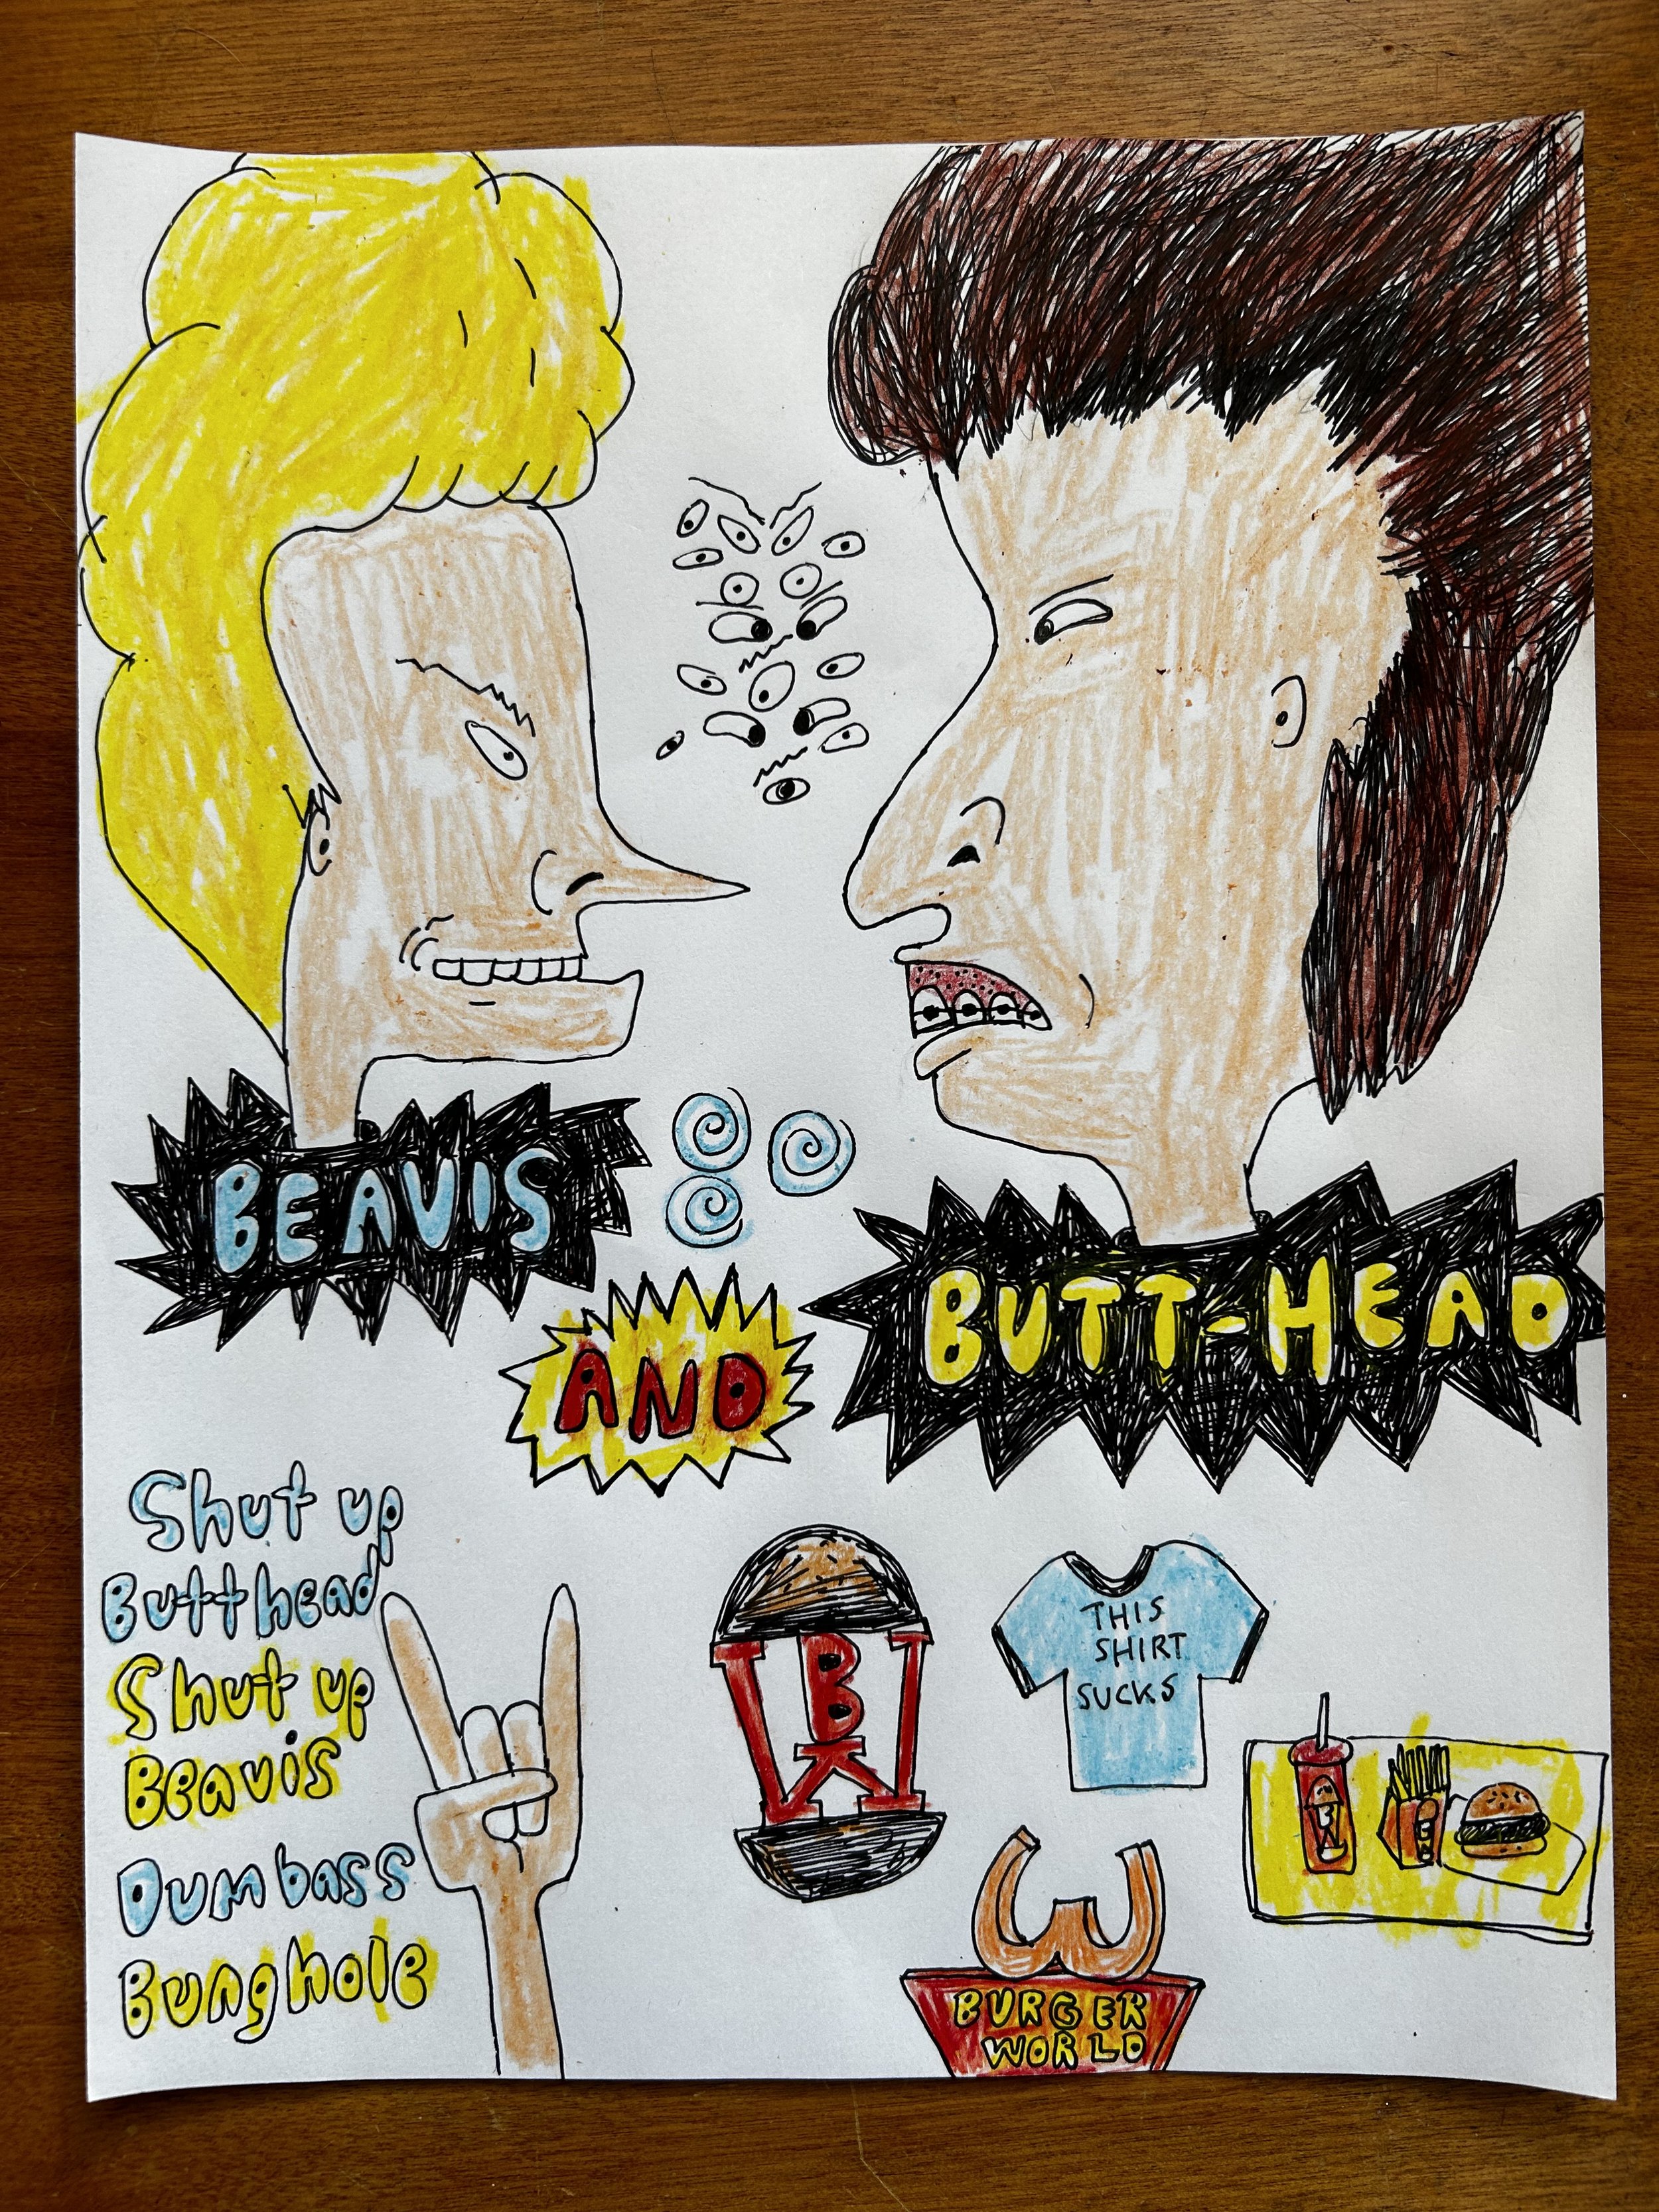 BEAVIS
AND
BUTT-HEAD
Shut up
Butthead
Shut up
Beavis
Dumbass
Bunghole
BW
THIS
SHIRT
SUCKS
BURGER
WORLD